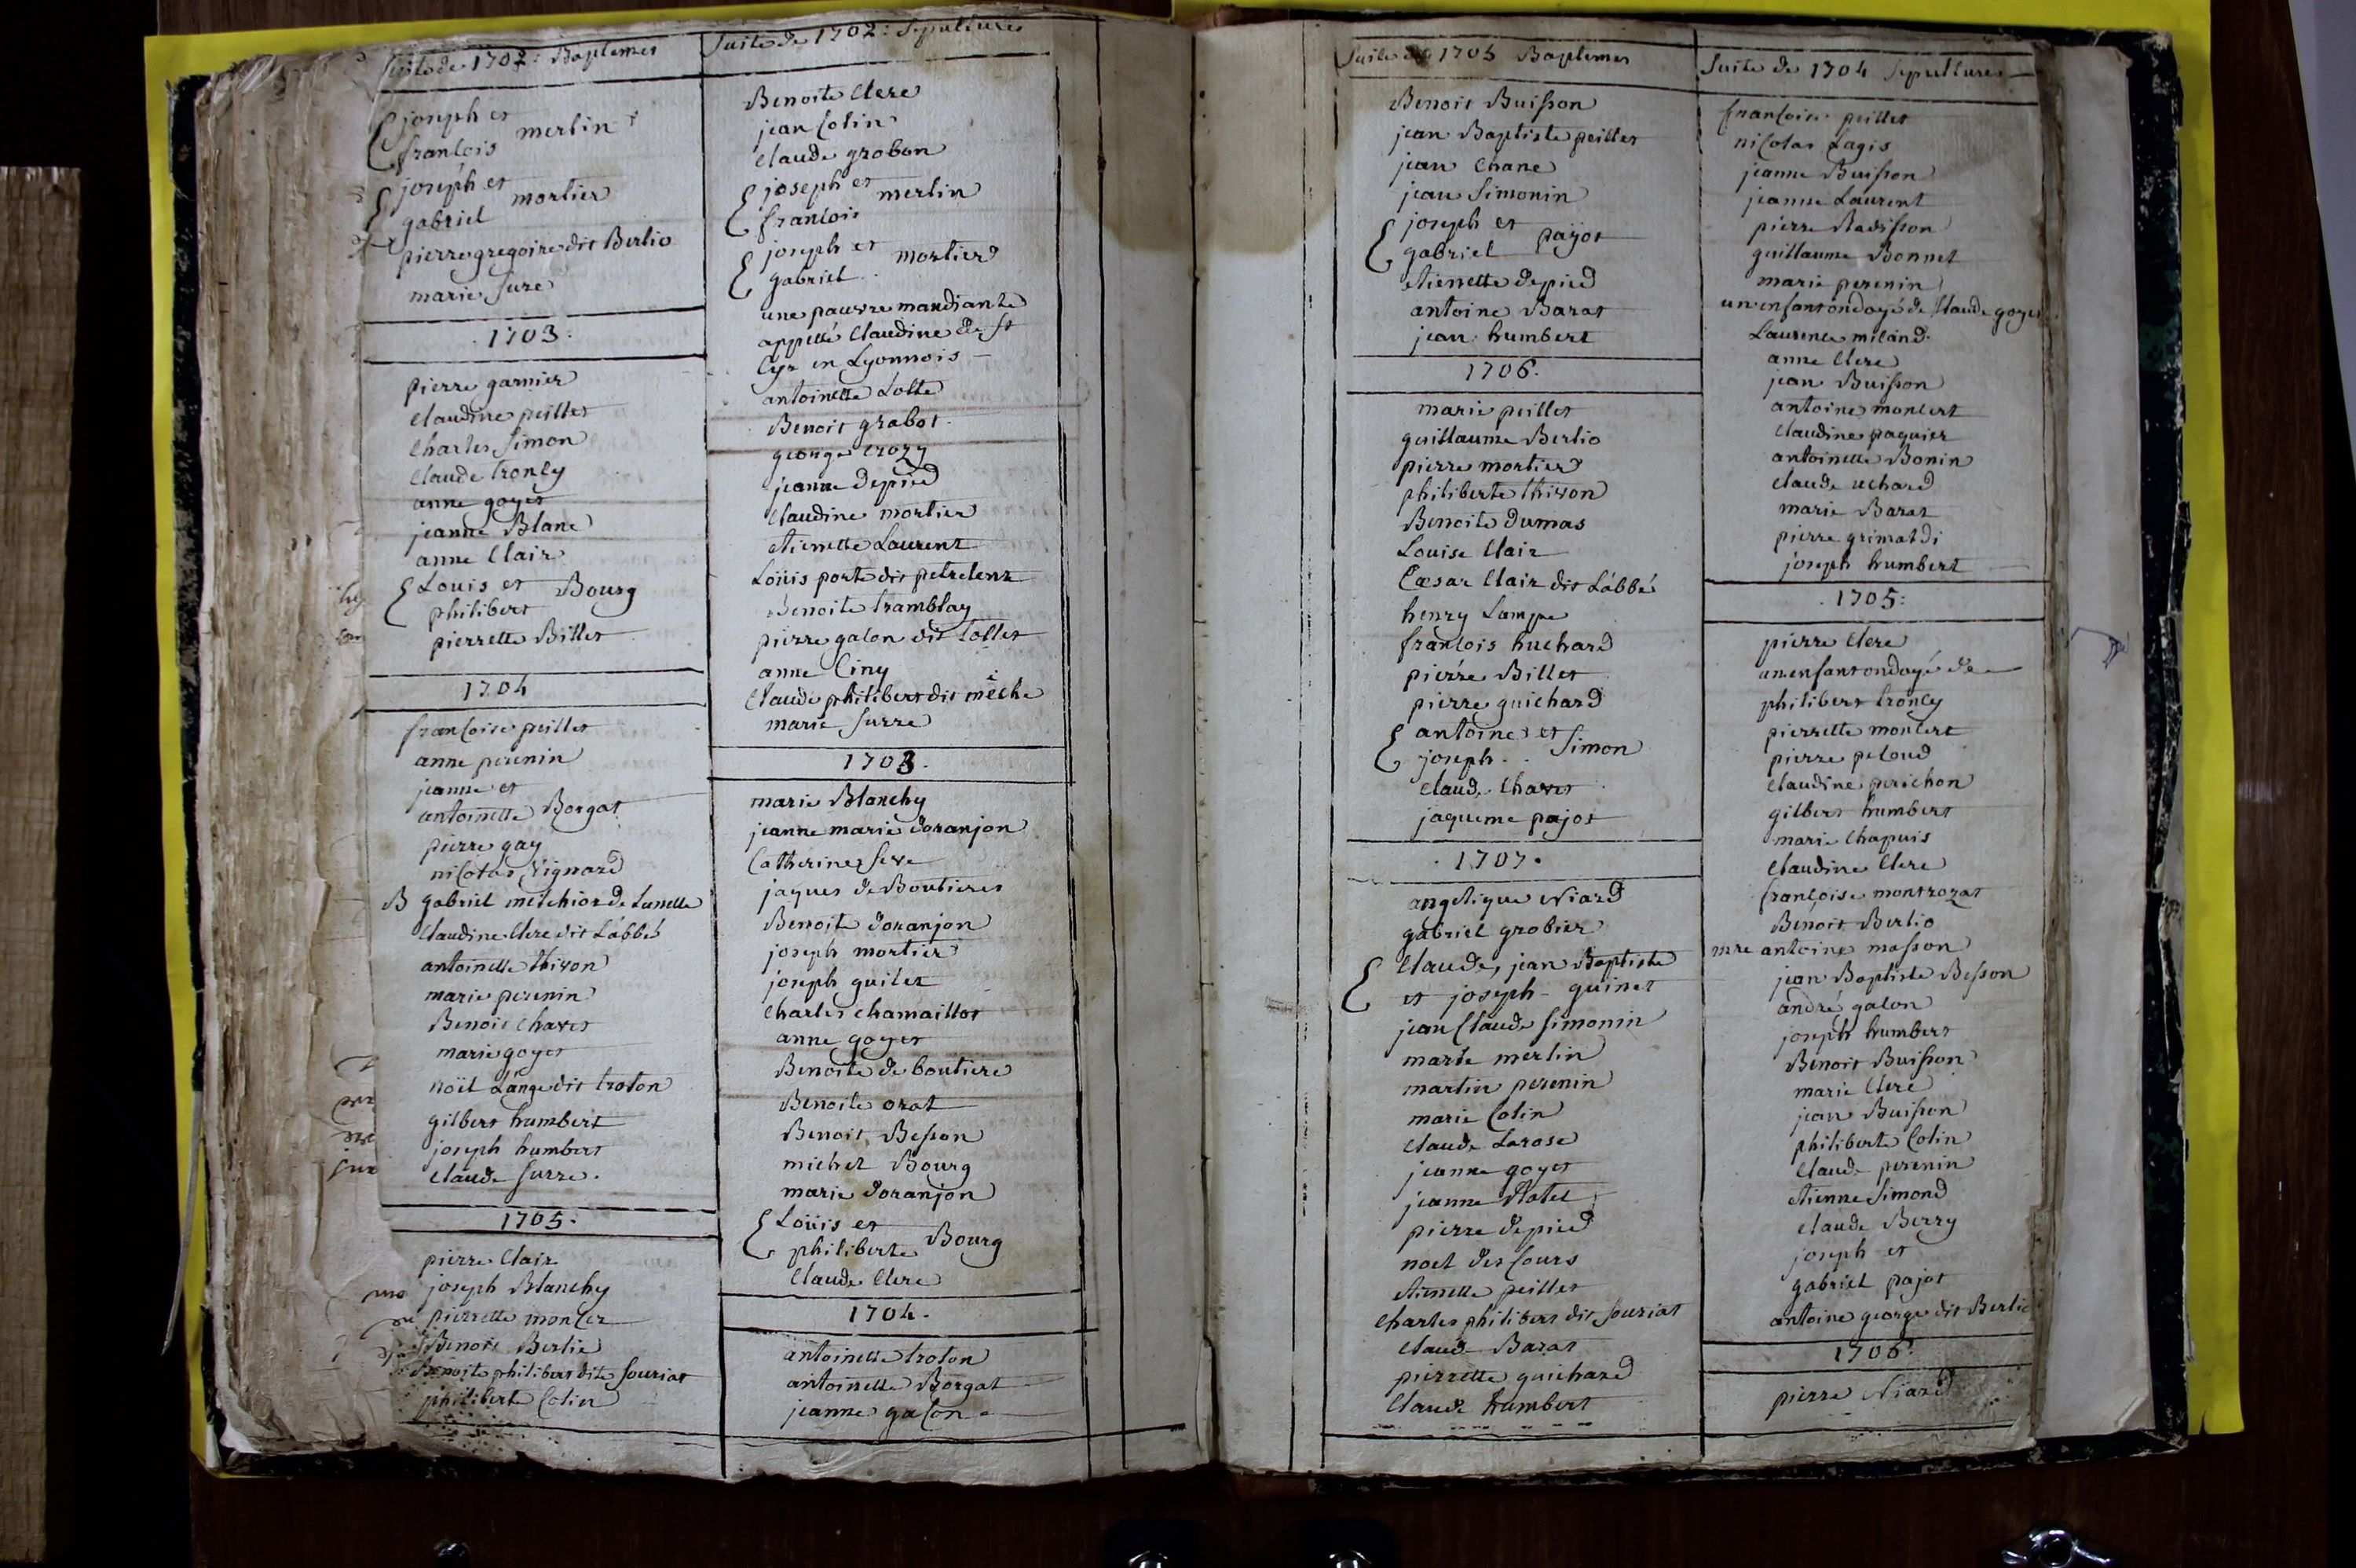 Suite de 1702: Baptemes
joseph et
françois merlin
joseph et
gabriel mortier
pierre gregoire dit Berlio
marie sure
1703.
pierre garnier
claudine peillet
charles simon
claude troncy
anne goyet
jeanne Blanc
anne clair
Louis et
philibert Bourg
pierrette Billet
1704
françoise peillet
anne perenin
jeanne et
antoinette Borgat
pierre gay
nicolas vignard
B gabriel melchior de Lunelle
claudine clerc dit Labbé
antoinette thivon
marie perenin
Benoit chavet
marie goyet
noël Lange dit troton
gilbert humbert
joseph humbert
claude surre.
1705.
pierre clair
joseph Blanchy
pierrette moncer
Benoit Berlié
Benoite philibert dite souriat
philiberte Colin
Suite de 1702: Sepultures
Benoite clerc
jean Colin
claude grobon
joseph et
françois merlin
joseph et
gabriel mortier
une pauvre mandiante
appellé claudine de st
Cyr en Lyonnois
antoinette Lotte
Benoit grabot
george crozy
jeanne depied
claudine mortier
etiennette Laurent
Loüis porte dit petrelent
Benoite tramblay
pierre galon dit Collet
anne Ciny
claude philibert dit miche
marie surre
1703.
marie Blanchy
jeanne marie doranjon
Catherine seve
jaques de Boutieres
Benoite doranjon
joseph mortier
joseph guilet
charles chamaillot
anne goyet
Benoite de boutiere
Benoite orat
Benoit Besson
michel Bourg
marie doranjon
Loüis et
philiberte Bourg
claude clerc
1704.
antoinette troton
antoinette Borgat
jeanne galon
Suite de 1705 Baptemes
Benoit Buisson
jean Baptiste peillet
jean chane
jean simonin
joseph et
gabriel pajot
etiennette depied
antoine Barat
jean humbert
1706.
marie peillet
guillaume Berlio
pierre mortier
philiberte thivon
Benoite dumas
Louise clair
Cæsar clair dit Labbé
henry Lampe
françois huchard
pierre Billet
pierre guichard
antoine et
joseph simon
claude chavet
jaqueme pajot
1707.
angelique Niard
gabriel grobier
claude, jean Baptiste
et joseph guinet
jean claude simonin
marie merlin
martin perenin
marie Colin
claude Larose
jeanne goyet
jeanne Platel
pierre depied
noel des Cours
etiennette peillet
charles philibert dit souriat
claude Barat
pierrette guichard
claude humbert
Suite de 1704 Sepultures
françoise peillet
nicolas Lagis
jeanne Buisson
jeanne Laurent
pierre Radisson
guillaume Bonnet
marie perenin
un enfant ondoyé de claude goyet
Laurence miland.
anne clerc
jean Buisson
antoine moncert
claudine paquier
antoinette Bonin
claude uchard
marie Barat
pierre grimaldi
joseph humbert
1705:
pierre clerc
un enfant ondoyé de
philibert troncy
pierrette moncert
pierre peloud
claudine perichon
gilbert humbert
marie chapuis
claudine clerc
françoise montrozat
Benoit Berlio
mre antoine masson
jean Baptiste Besson
andré galon
joseph humbert
Benoit Buisson
marie clerc
jean Buisson
philiberte Colin
claude perenin
etienne simond
claude Berry
joseph et
gabriel pajot
antoine george dit Berlio
1706.
pierre Niard